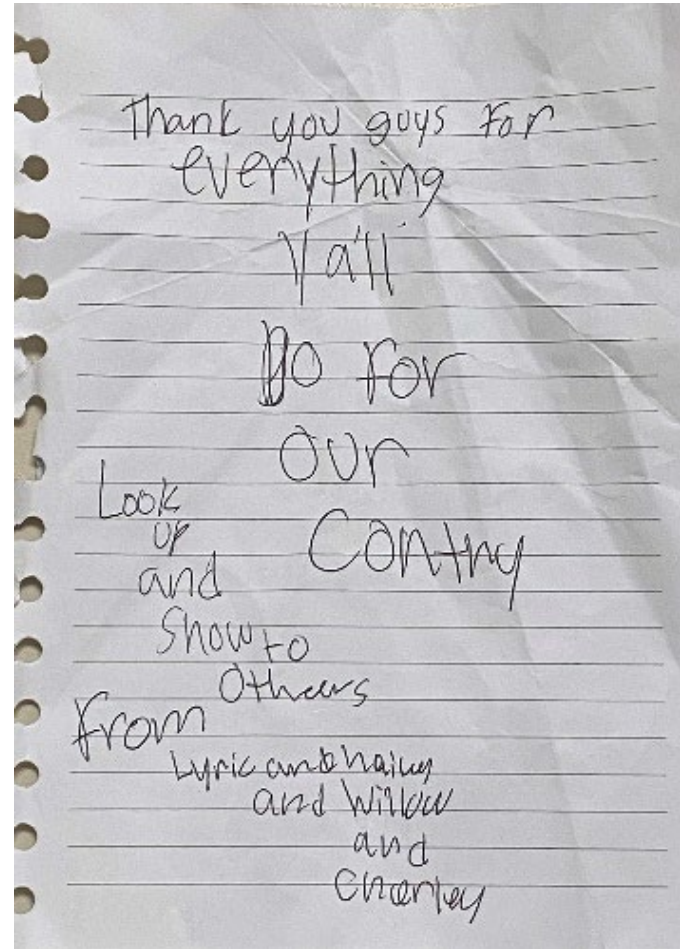 Thank you guys for
everything
Ya'll
Do for
our
Contry
Look
up
and
Show to
Others
From
Lyric and haiwy
and Willow
and
Charley